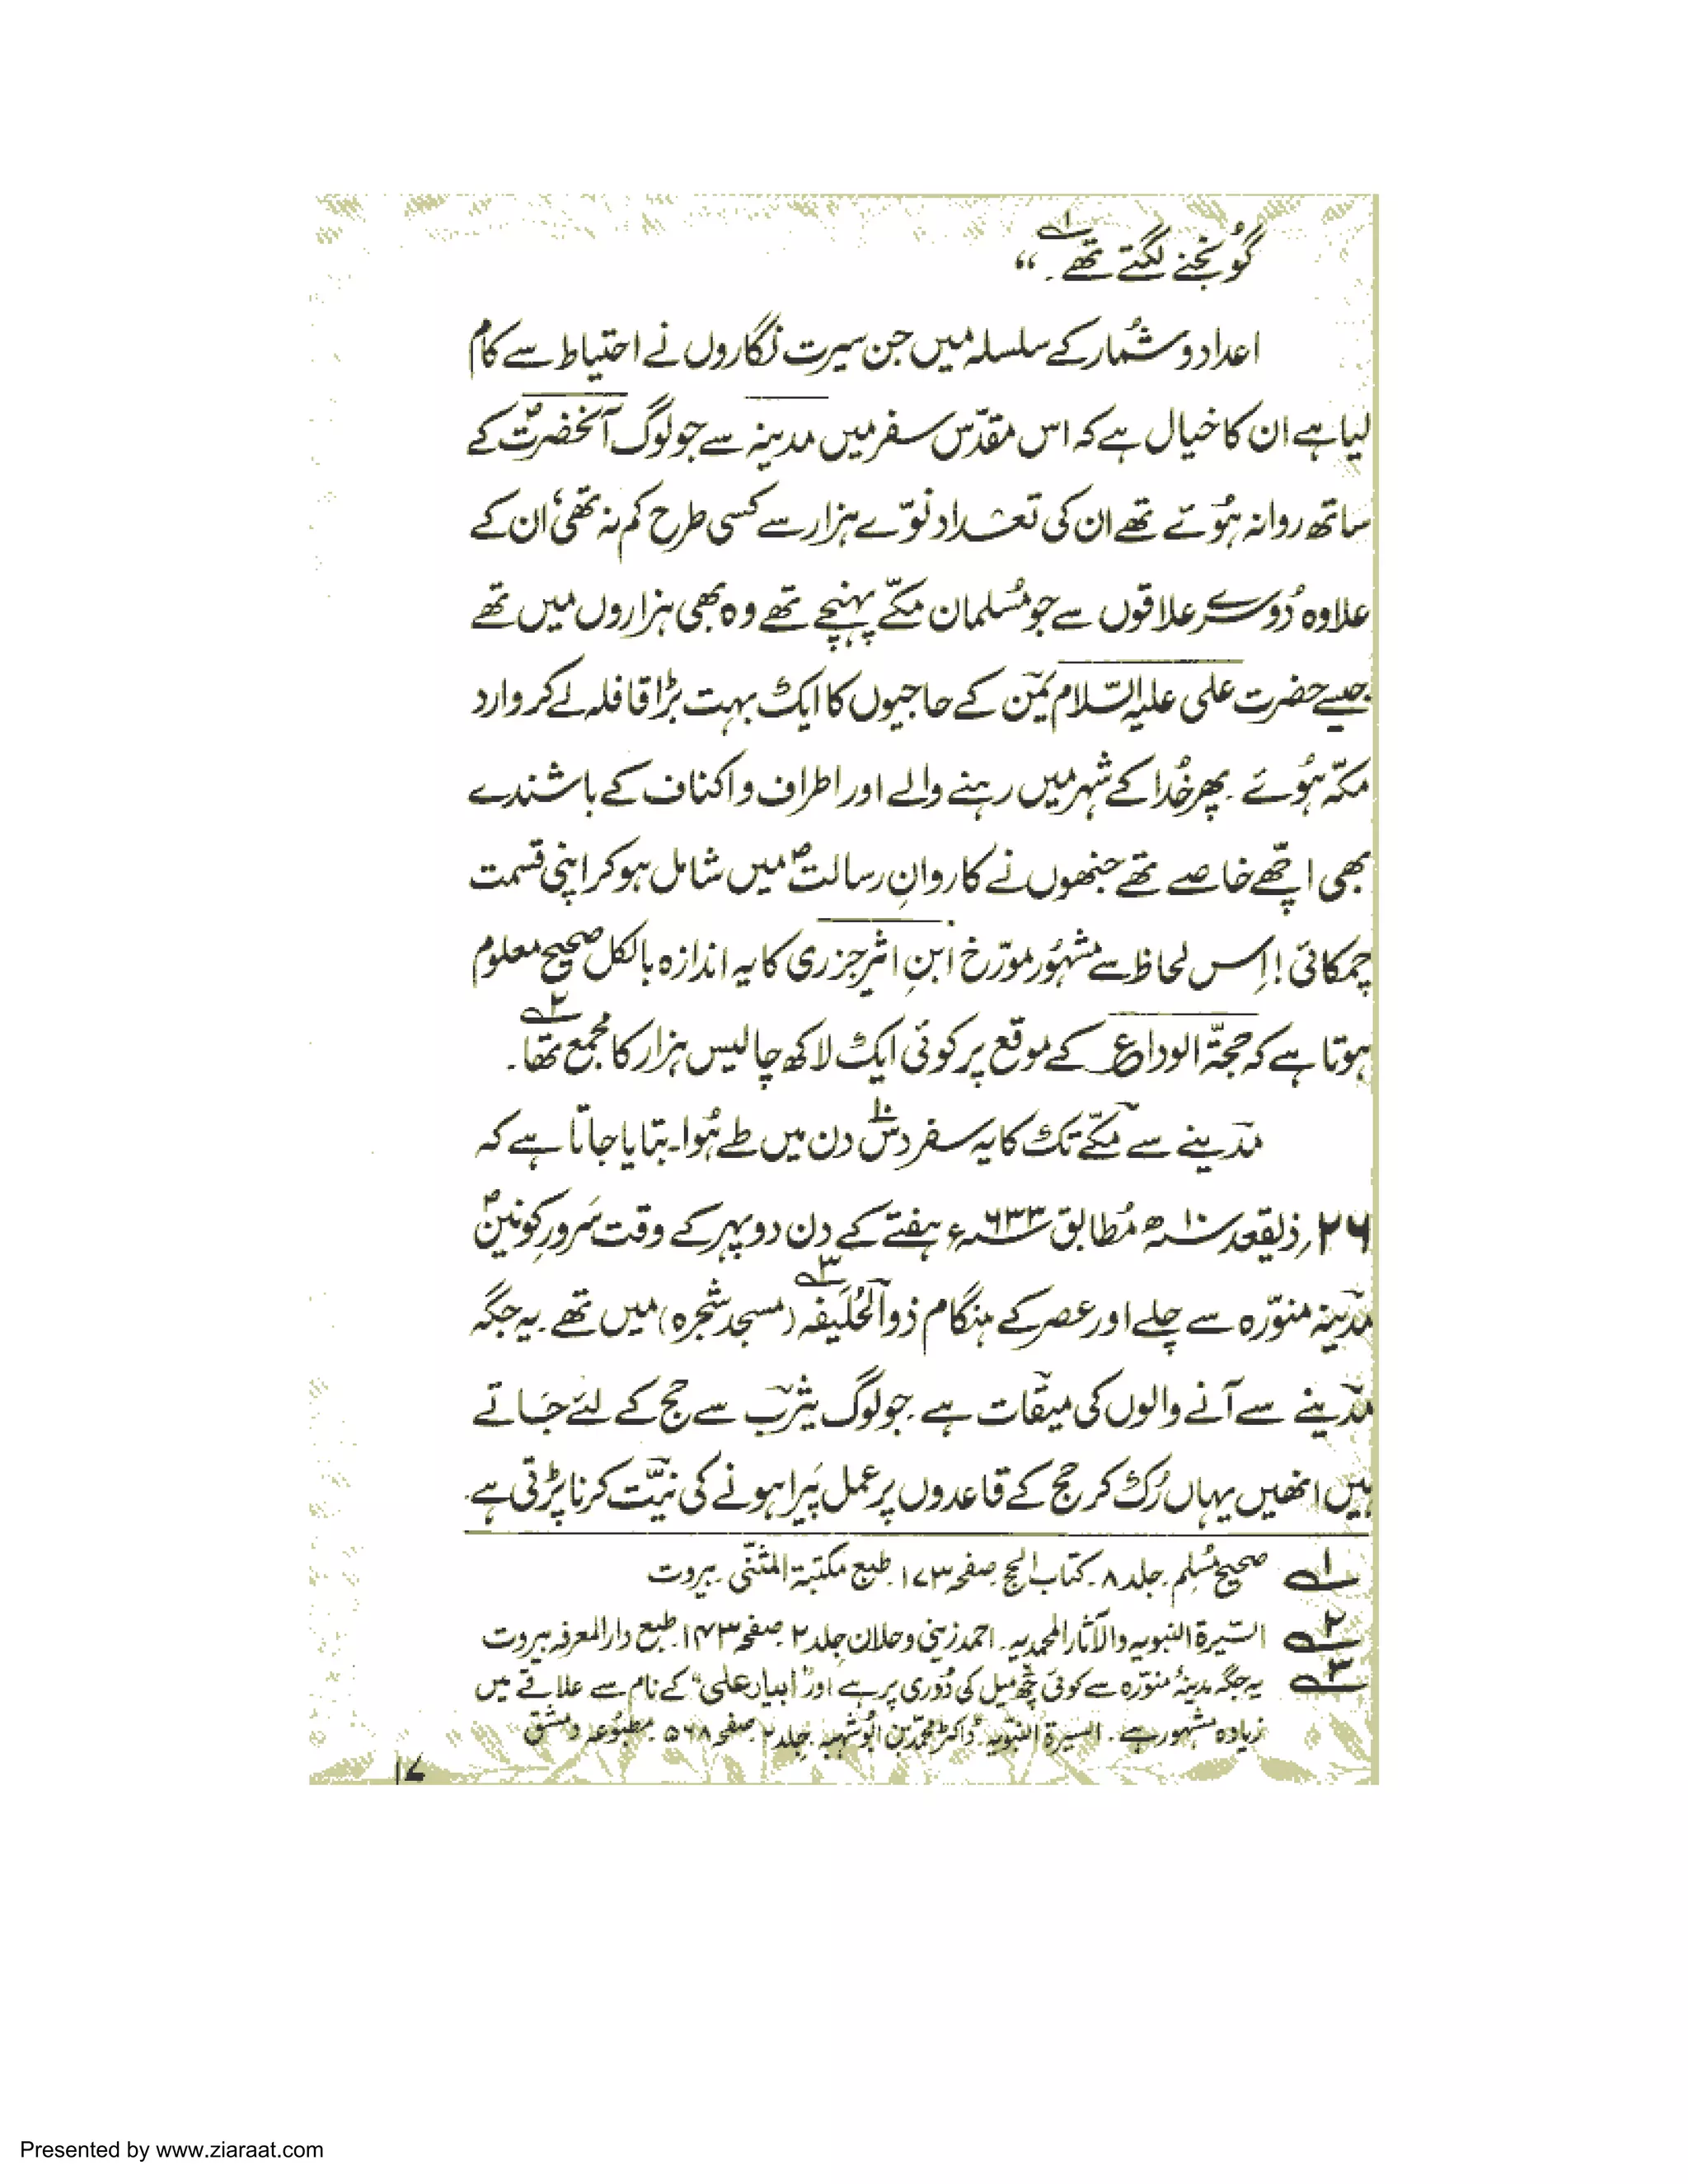 گونجنے لگتے تھے۔۱؎ “
اعداد و شمار کے سلسلہ میں جن سیرت نگاروں نے احتیاط سے کام
لیا ہے ان کا خیال ہے کہ اس مقدّس سفر میں مدینہ سے جو لوگ آنحضرتؐ کے
ساتھ روانہ ہُوئے تھے ان کی تعداد نوّے ہزار سے کسی طرح کم نہ تھی، ان کے
علاوہ دُوسرے علاقوں سے جو مُسلمان مکّے پہنچے تھے وہ بھی ہزاروں میں تھے
جیسے حضرت علی علیہ السّلام یمن کے حاجیوں کا ایک بہت بڑا قافلہ لے کر وارد
مکّہ ہُوئے۔ پھر خُدا کے شہر میں رہنے والے اور اطراف و اکناف کے باشندے
بھی اچّھے خاصے تھے جنھوں نے کاروانِ رسالتؐ میں شامل ہو کر اپنی قسمت
چمکائی! اِس لحاظ سے مشہُور مورّخ ابنِ اثیر جزری کا یہ اندازہ بالکل صحیح معلوم
ہوتا ہے کہ حجّۃ الوداع کے موقع پر کوئی ایک لاکھ چالیس ہزار کا مجمع تھا۲؎۔
مدینے سے مکّے تک کا یہ سفر دس۱۰ دن میں طے ہُوا۔ بتایا جاتا ہے کہ
۲۶؍ ذیقعد ۱۰ھ مُطابق ۶۳۳ء ہفتے کے دن دوپہر کے وقت سَرورِ کونینؐ
مدینہ منوّرہ سے چلے اور عصر کے ہنگام ذوالحُلَیفہ۳؎ (مسجد شجرہ) میں تھے۔ یہ جگہ
مدینے سے آنے والوں کی میقات ہے۔ جو لوگ یثرب سے حج کے لئے جاتے
ہیں انھیں یہاں رُک کر حج کے قاعدوں پر عمل پَیرا ہونے کی نیّت کرنا پڑتی ہے۔
۱؎ صحیح مُسلم۔ جلد ۸۔ کتاب الحج۔ صفحہ ۱۷۳۔ طبع مکتبۃ المثنّٰی۔ بیروت
۲؎ السّیرۃ النبویہ والآثار المحمدیہ۔ احمد زینی دحلان جلد ۲۔ صفحہ ۱۴۳۔ طبع دارالمعرفہ بیروت
۳؎ یہ جگہ مدینۂ منوّرہ سے کوئی چھ میل کی دُوری پر ہے اور "ابیار علی" کے نام سے علاقے میں
زیادہ مشہور ہے۔ السیرۃ النبّویہ۔ ڈاکٹر محمّد بن ابُو شہبہ۔ جلد ۲۔ صفحہ ۵۶۸۔ مطبُوعہ دمشق
۱۷
Presented by www.ziaraat.com